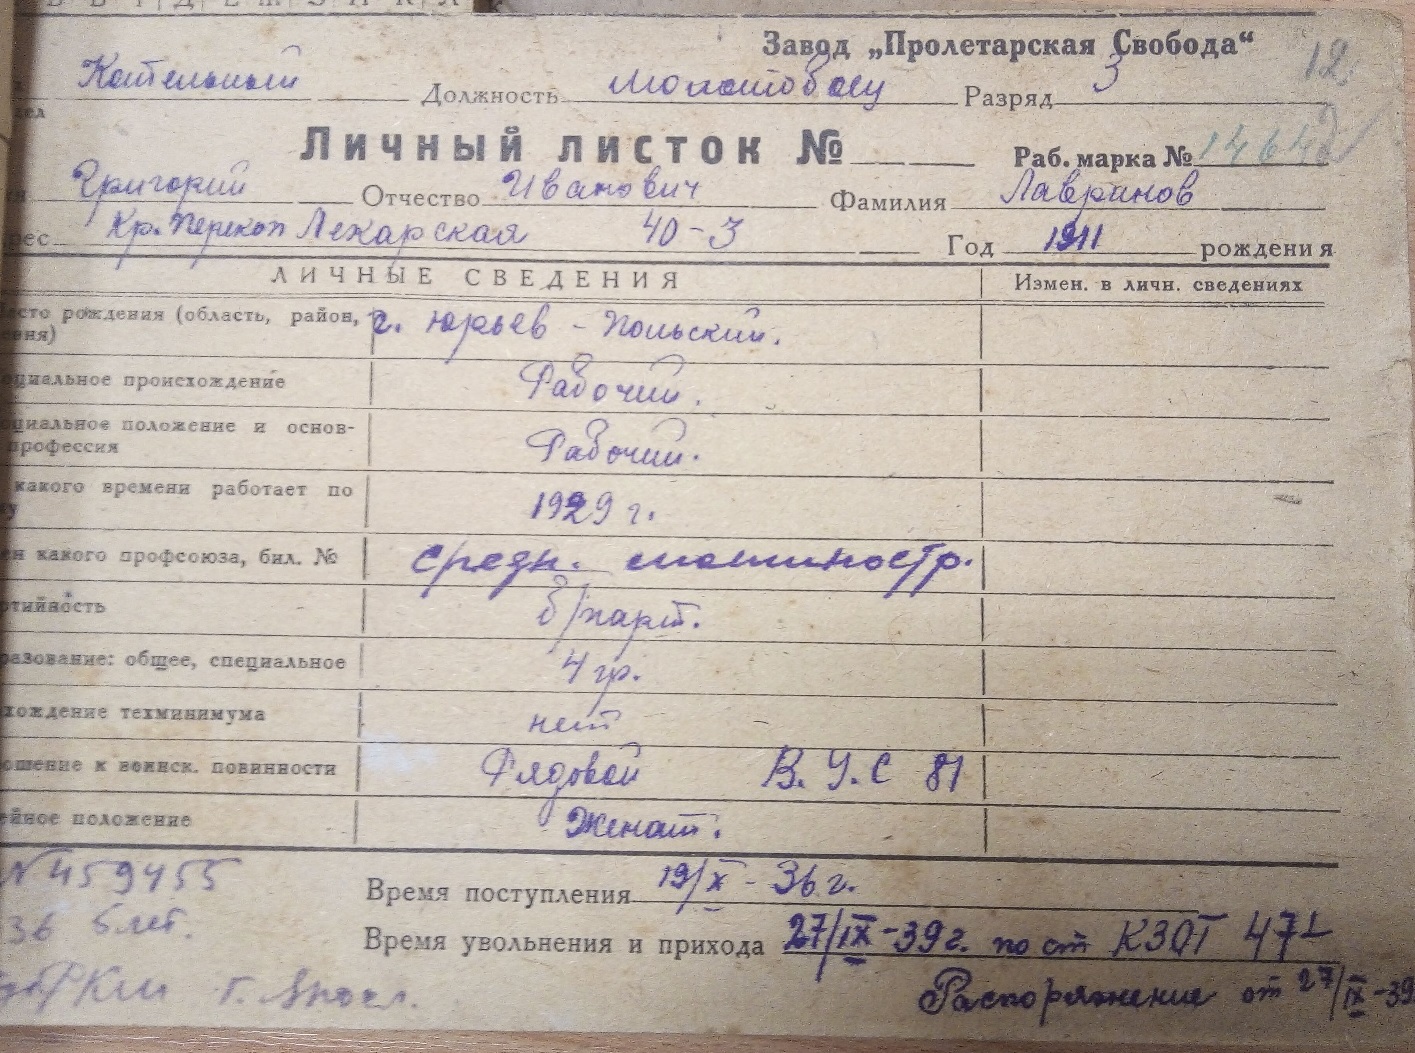 Завод „Пролетарская Свобода“
12
Котельный Должность Молотобоец Разряд 3
дел
Личный листок № Раб. марка № 1464
Григорий Отчество Иванович Фамилия Лавринов
рес Кр. Перекоп Лекарская 40-3 Год 1911 рождения
ЛИЧНЫЕ СВЕДЕНИЯ Измен. в личн. сведениях
сто рождения (область, район, г. Юрьев-Польский.
вня)
оциальное происхождение Рабочий.
оциальное положение и основ-
профессия Рабочий.
какого времени работает по 1929 г.
му
ен какого профсоюза, бил. № средн. машиностр.
ртийность б/парт.
разование: общее, специальное 4 гр.
хождение техминимума нет
ошение к воинск. повинности Рядовой В.У.С 81
ейное положение Женат.
№459455
Время поступления 19/X-36 г.
36 5 лет.
Время увольнения и прихода 27/IX-39 г. по ст КЗОТ 47
РКМ г. Яросл.
Распоряжение от 27/IX-39